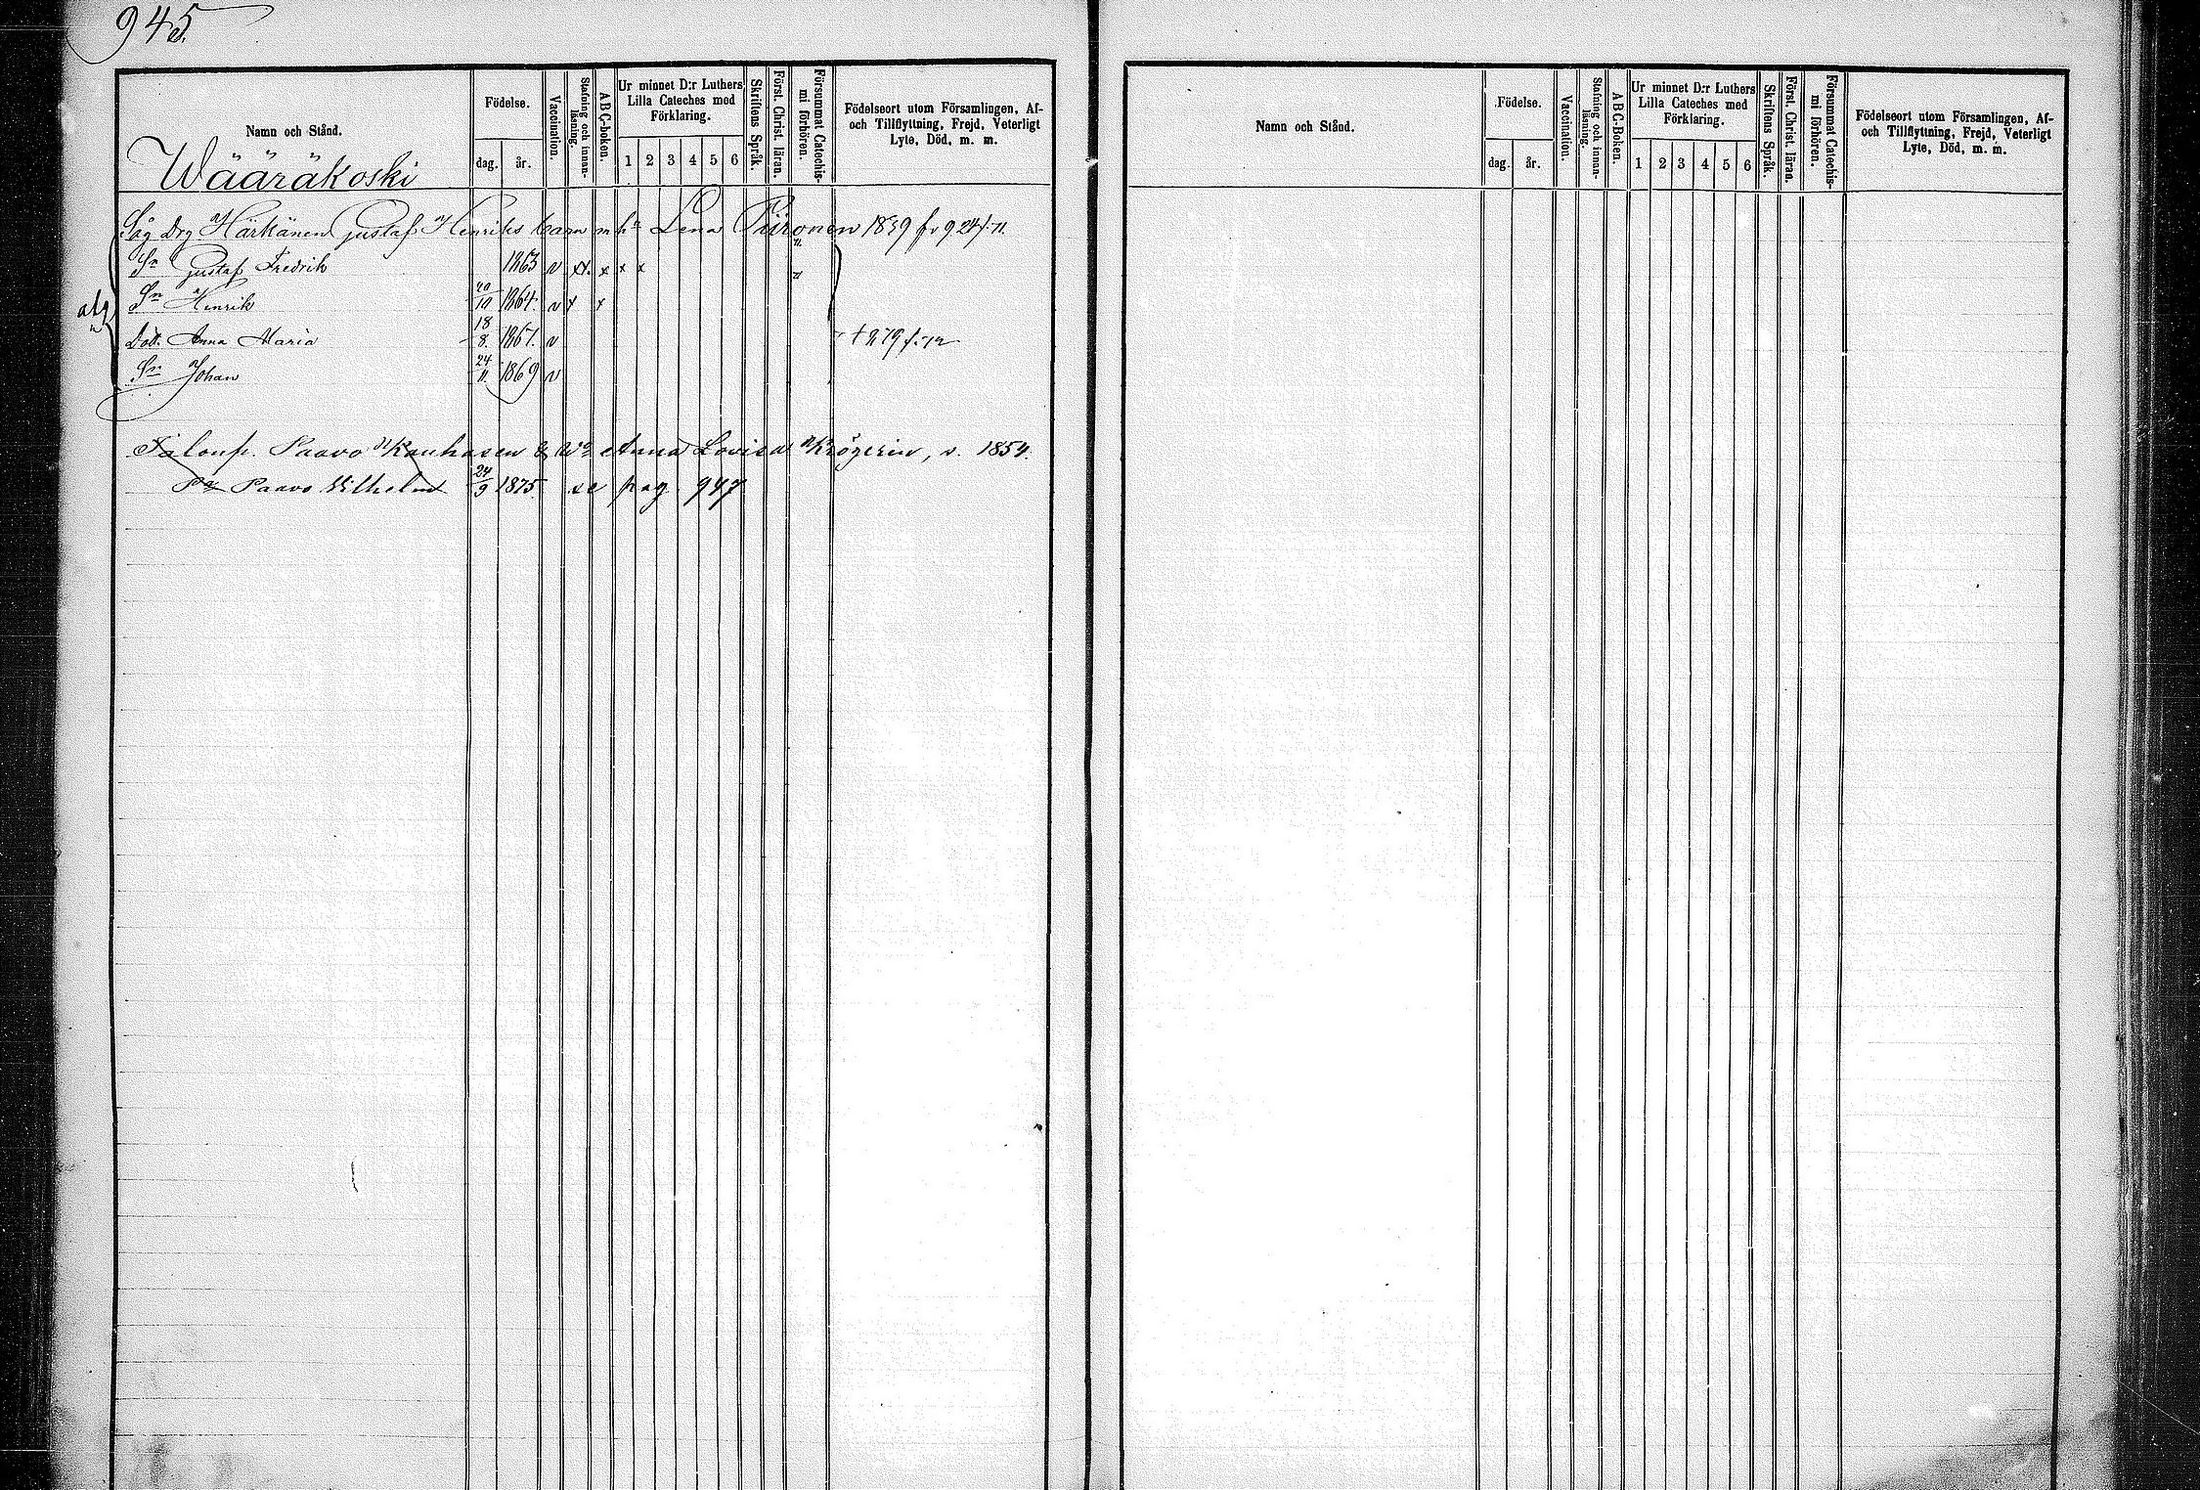 945.
Namn och Stånd.
Födelse.
dag. år.
Vaccination.
Stafning och innan-läsning.
A B C-boken.
Ur minnet D:r Luthers
Lilla Cateches med
Förklaring.
1 2 3 4 5 6
Skriftens Språk.
Först. Christ. läran.
Försummat Catechis-mi förhören.
Födelseort utom Församlingen, Af-
och Tillflyttning, Frejd, Veterligt
Lyte, Död, m. m.
Wääräkoski
Såg drg Härkänen Gustaf Henriks barn m hu Lena Piironen 1839 fr 924 f. 71.
Sn Gustaf Fredrik 1863 v xx. x x x
Sn Henrik 20/10 1864. v x x
Dott. Anna Maria 18/8. 1867. v + 279 f. 72
Sn Johan 24/11. 1869 v
Paavo Kauhasen Anna Lovisa Krögerin, s. 1854.
Paavo Vilhelm 24/9 1875. se pag. 947
Namn och Stånd.
Födelse.
dag. år.
Vaccination.
Stafning och innan-läsning.
A B C-Boken.
Ur minnet D:r Luthers
Lilla Cateches med
Förklaring.
1 2 3 4 5 6
Skriftens Språk.
Först. Christ. läran.
Försummat Catechis-mi förhören.
Födelseort utom Församlingen, Af-
och Tillflyttning, Frejd, Veterligt
Lyte, Död, m. m.